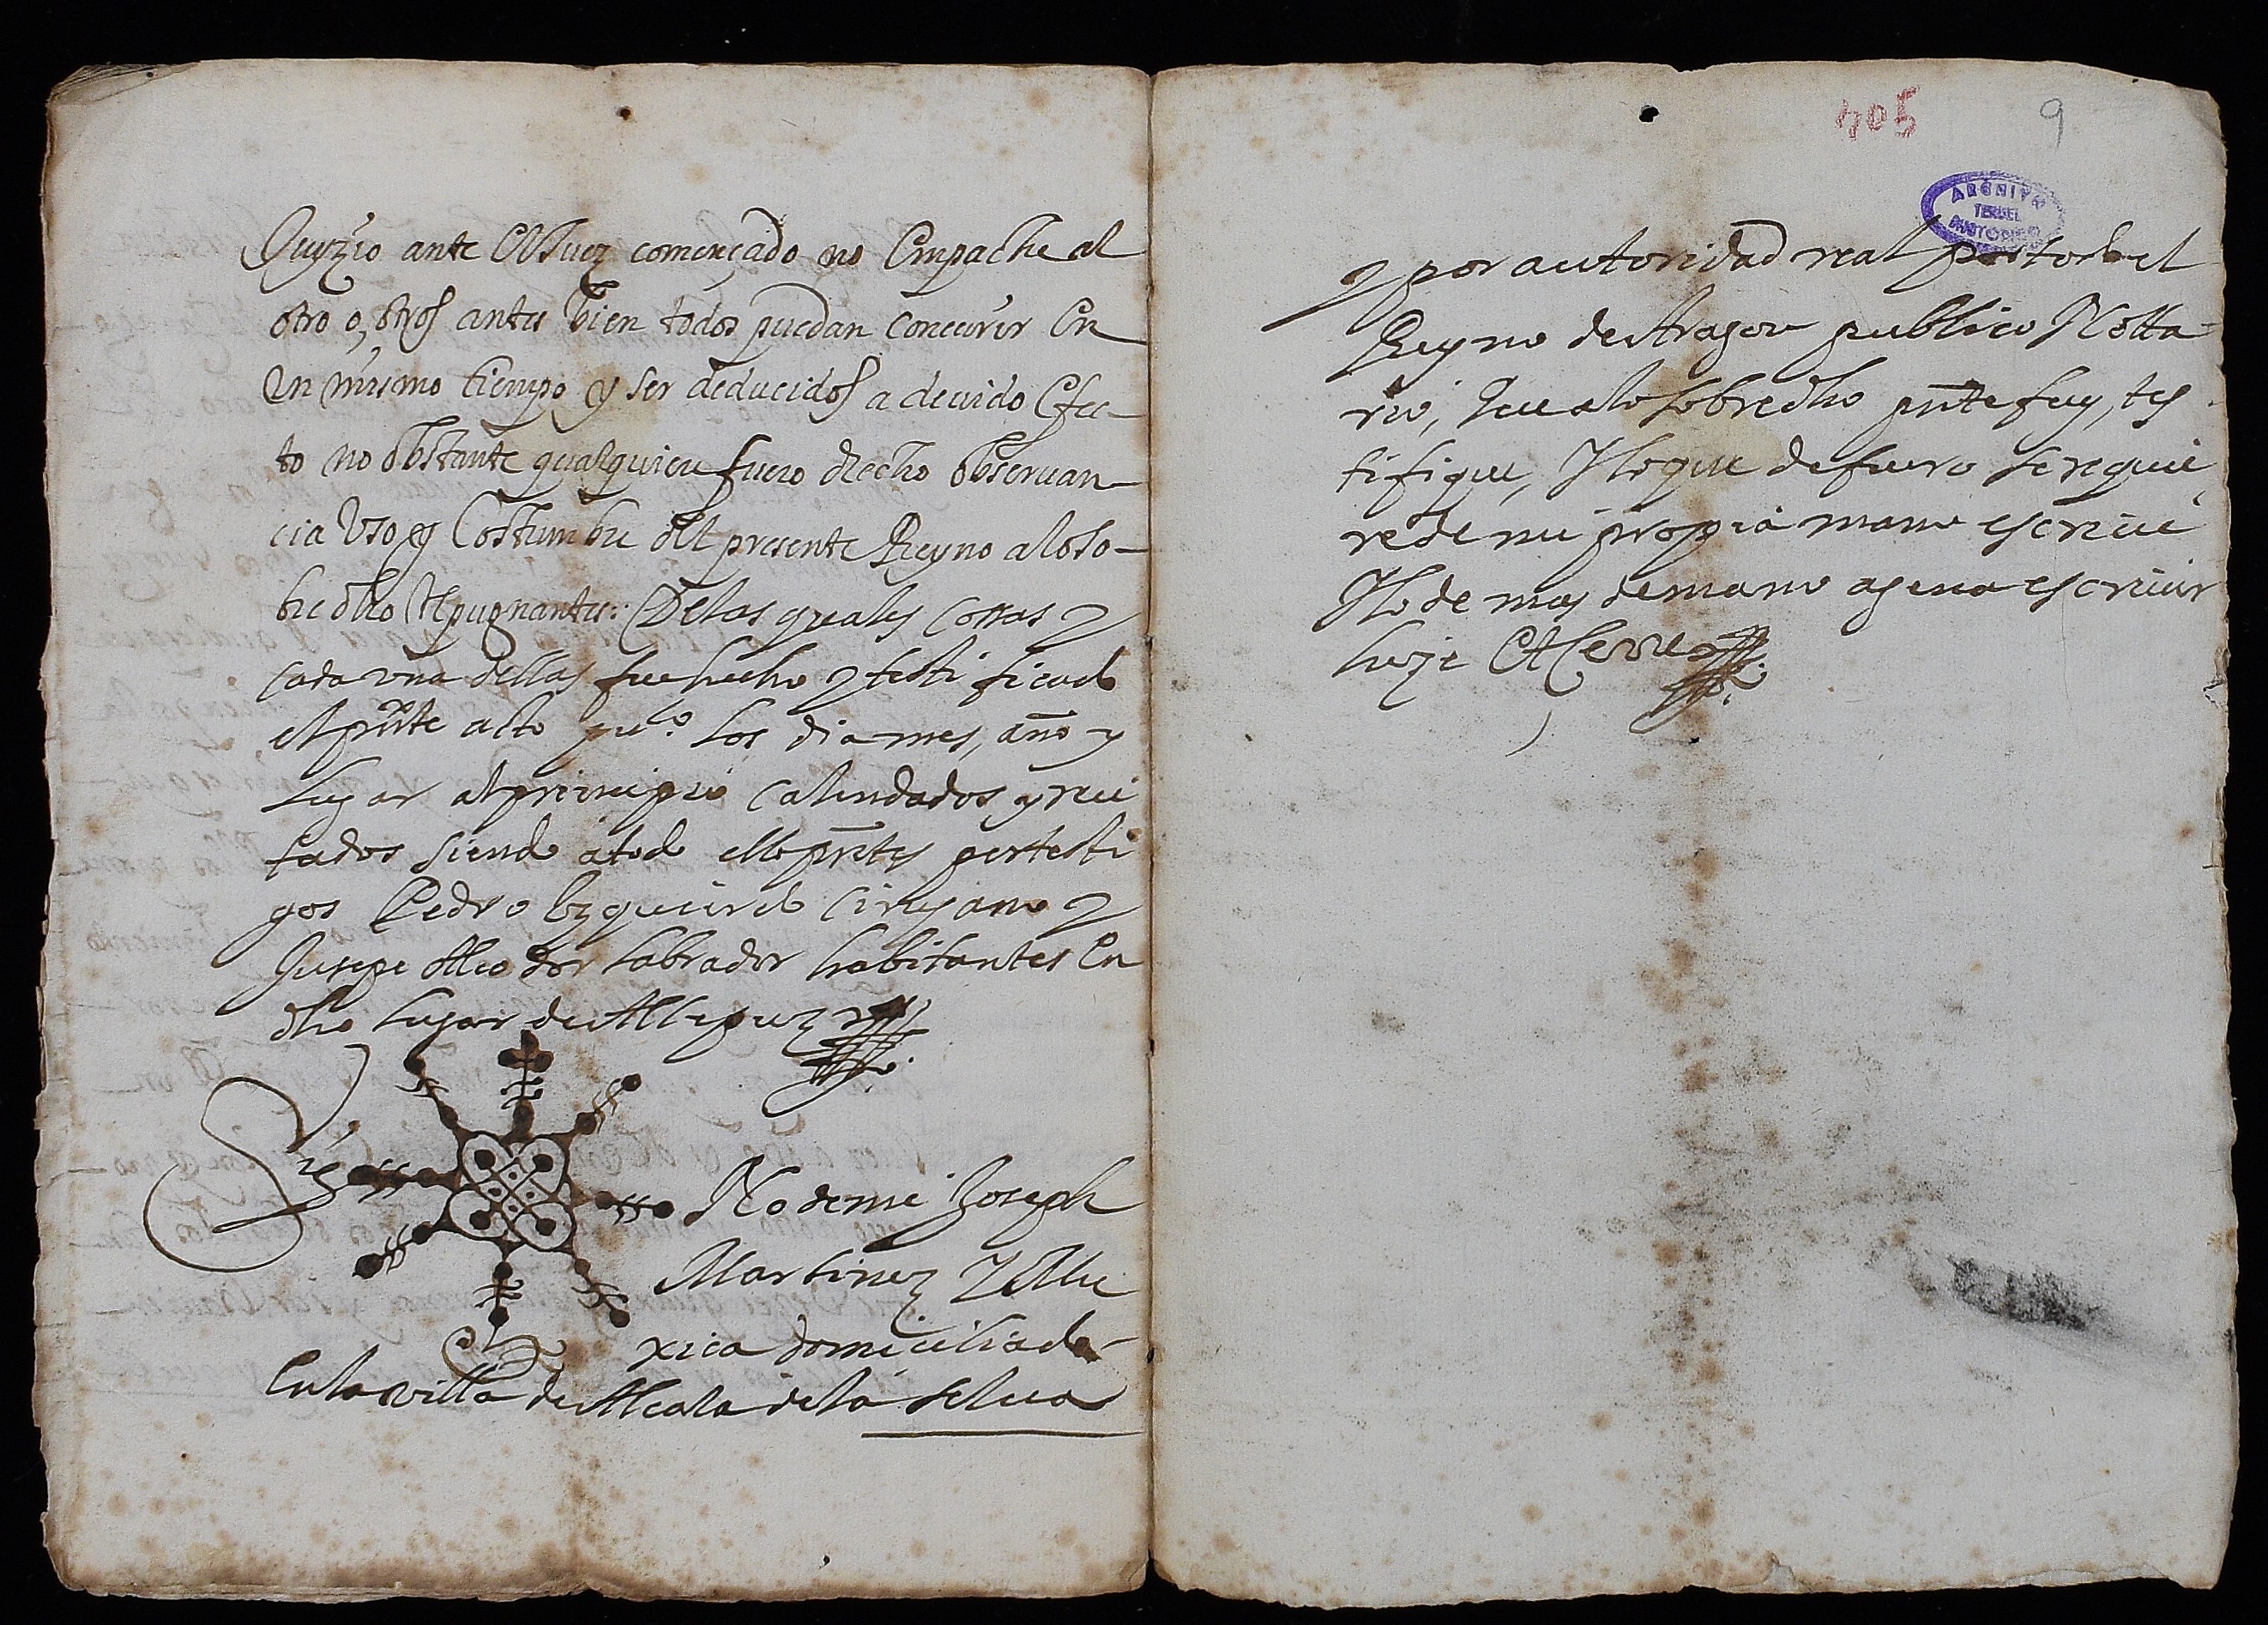 Juyzio ante el Juez començado no empache al
otro o, otros antes bien todos puedan concurir en
un mismo tiempo y ser deducidos a deuido efec-
to no obstante qualquiere fuero drecho obseruan-
cia Uso y Costumbre del presente Reyno a lo so-
bredho repugnantes: De las quales cossas y
cada una dellas fue hecho y testificado
el prnte acto puco los dia mes, año y
lugar al principio calendados y reci
tados siendo a todo ello prntes por testi
gos Pedro Izquierdo Cirujano y
Jusepe labrador habitantes en
dho lugar de Allepuz
Sig No de mi Joseph
Martinez Y Mu
xica domiciliado
en la villa de Alcala de la Selua
405 9
ARCHIVO
TERUEL
HISTORICO
y por autoridad real por todo el
Reyno de Aragon publico Notta-
rio, que a lo sobredho prnte fuy, tes
tifique, Y lo que de fuero se requie
re de mi propia mano escriui
Y lo demas de mano agena escriuir
hize et Cerre